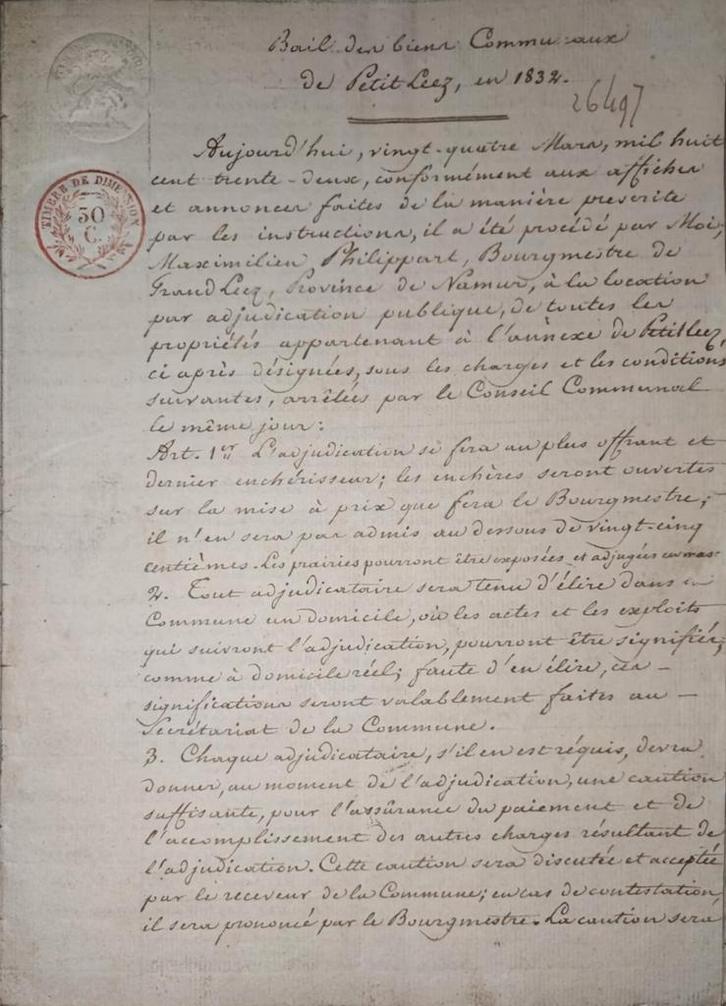 Bail des biens Communaux
de Petit Leez, en 1832.
26497
TIMBRE DE DIMENSION
50
C.
Aujourd'hui, vingt-quatre Mars, mil huit
cent trente-deux, conformément aux affiches
et annonces faites de la manière prescrite
par les instructions, il a été procédé par Moi,
Maximilien Philippart, Bourgmestre de
Grand Leez, Province de Namur, à la location
par adjudication publique, de toutes les
propriétés appartenant à l'annèxe de Petit Leez,
ci après désignées, sous les charges et les conditions
suivantes, arrêtées par le Conseil Communal
le même jour:
Art. 1er L'adjudication se fera au plus offrant et
dernier enchérisseur; les enchères seront ouvertes
sur la mise à prix que fera le Bourgmestre;
il n'en sera pas admis au dessous de vingt-cinq
centièmes. Les prairies pourront être exposées et adjugées en masse
2. Tout adjudicataire sera tenu d'élire dans la
Commune un domicile, où les actes et les exploits
qui suivront l'adjudication, pourront être signifiés,
comme à domicile réel; faute d'en élire, ces —
significations seront valablement faites au —
Secrétariat de la Commune.
3. Chaque adjudicataire, s'il en est réquis, devra
donner, au moment de l'adjudication, une caution
suffisante, pour l'assûrance du paiement et de
l'accomplissement des autres charges résultant de
l'adjudication. Cette caution sera discutée et acceptée
par le receveur de la Commune; en cas de contestation,
il sera prononcé par le Bourgmestre. La caution sera